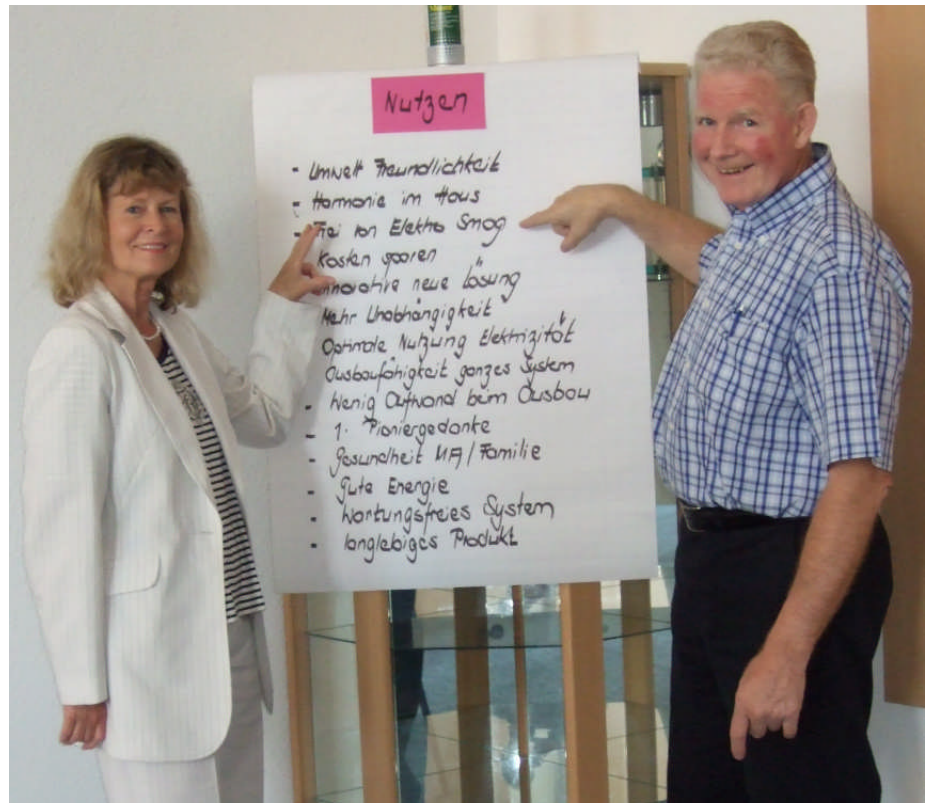 Nutzen
- Umwelt Freundlichkeit
- Harmonie im Haus
- Frei von Elektro Smog
Kosten sparen
Innovative neue Lösung
Mehr Unabhängigkeit
Optimale Nutzung Elektrizität
Ausbaufähigkeit ganzes System
- Wenig Aufwand beim Ausbau
- 1. Pioniergedanke
- Gesundheit MA/Familie
- gute Energie
- Wartungsfreies System
- langlebiges Produkt